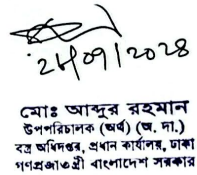 ২৮/০৭/২০২৪
মোঃ আব্দুর রহমান
উপপরিচালক (অর্থ) (অ. দা.)
বস্ত্র অধিদপ্তর, প্রধান কার্যালয়, ঢাকা
গণপ্রজাতন্ত্রী বাংলাদেশ সরকার